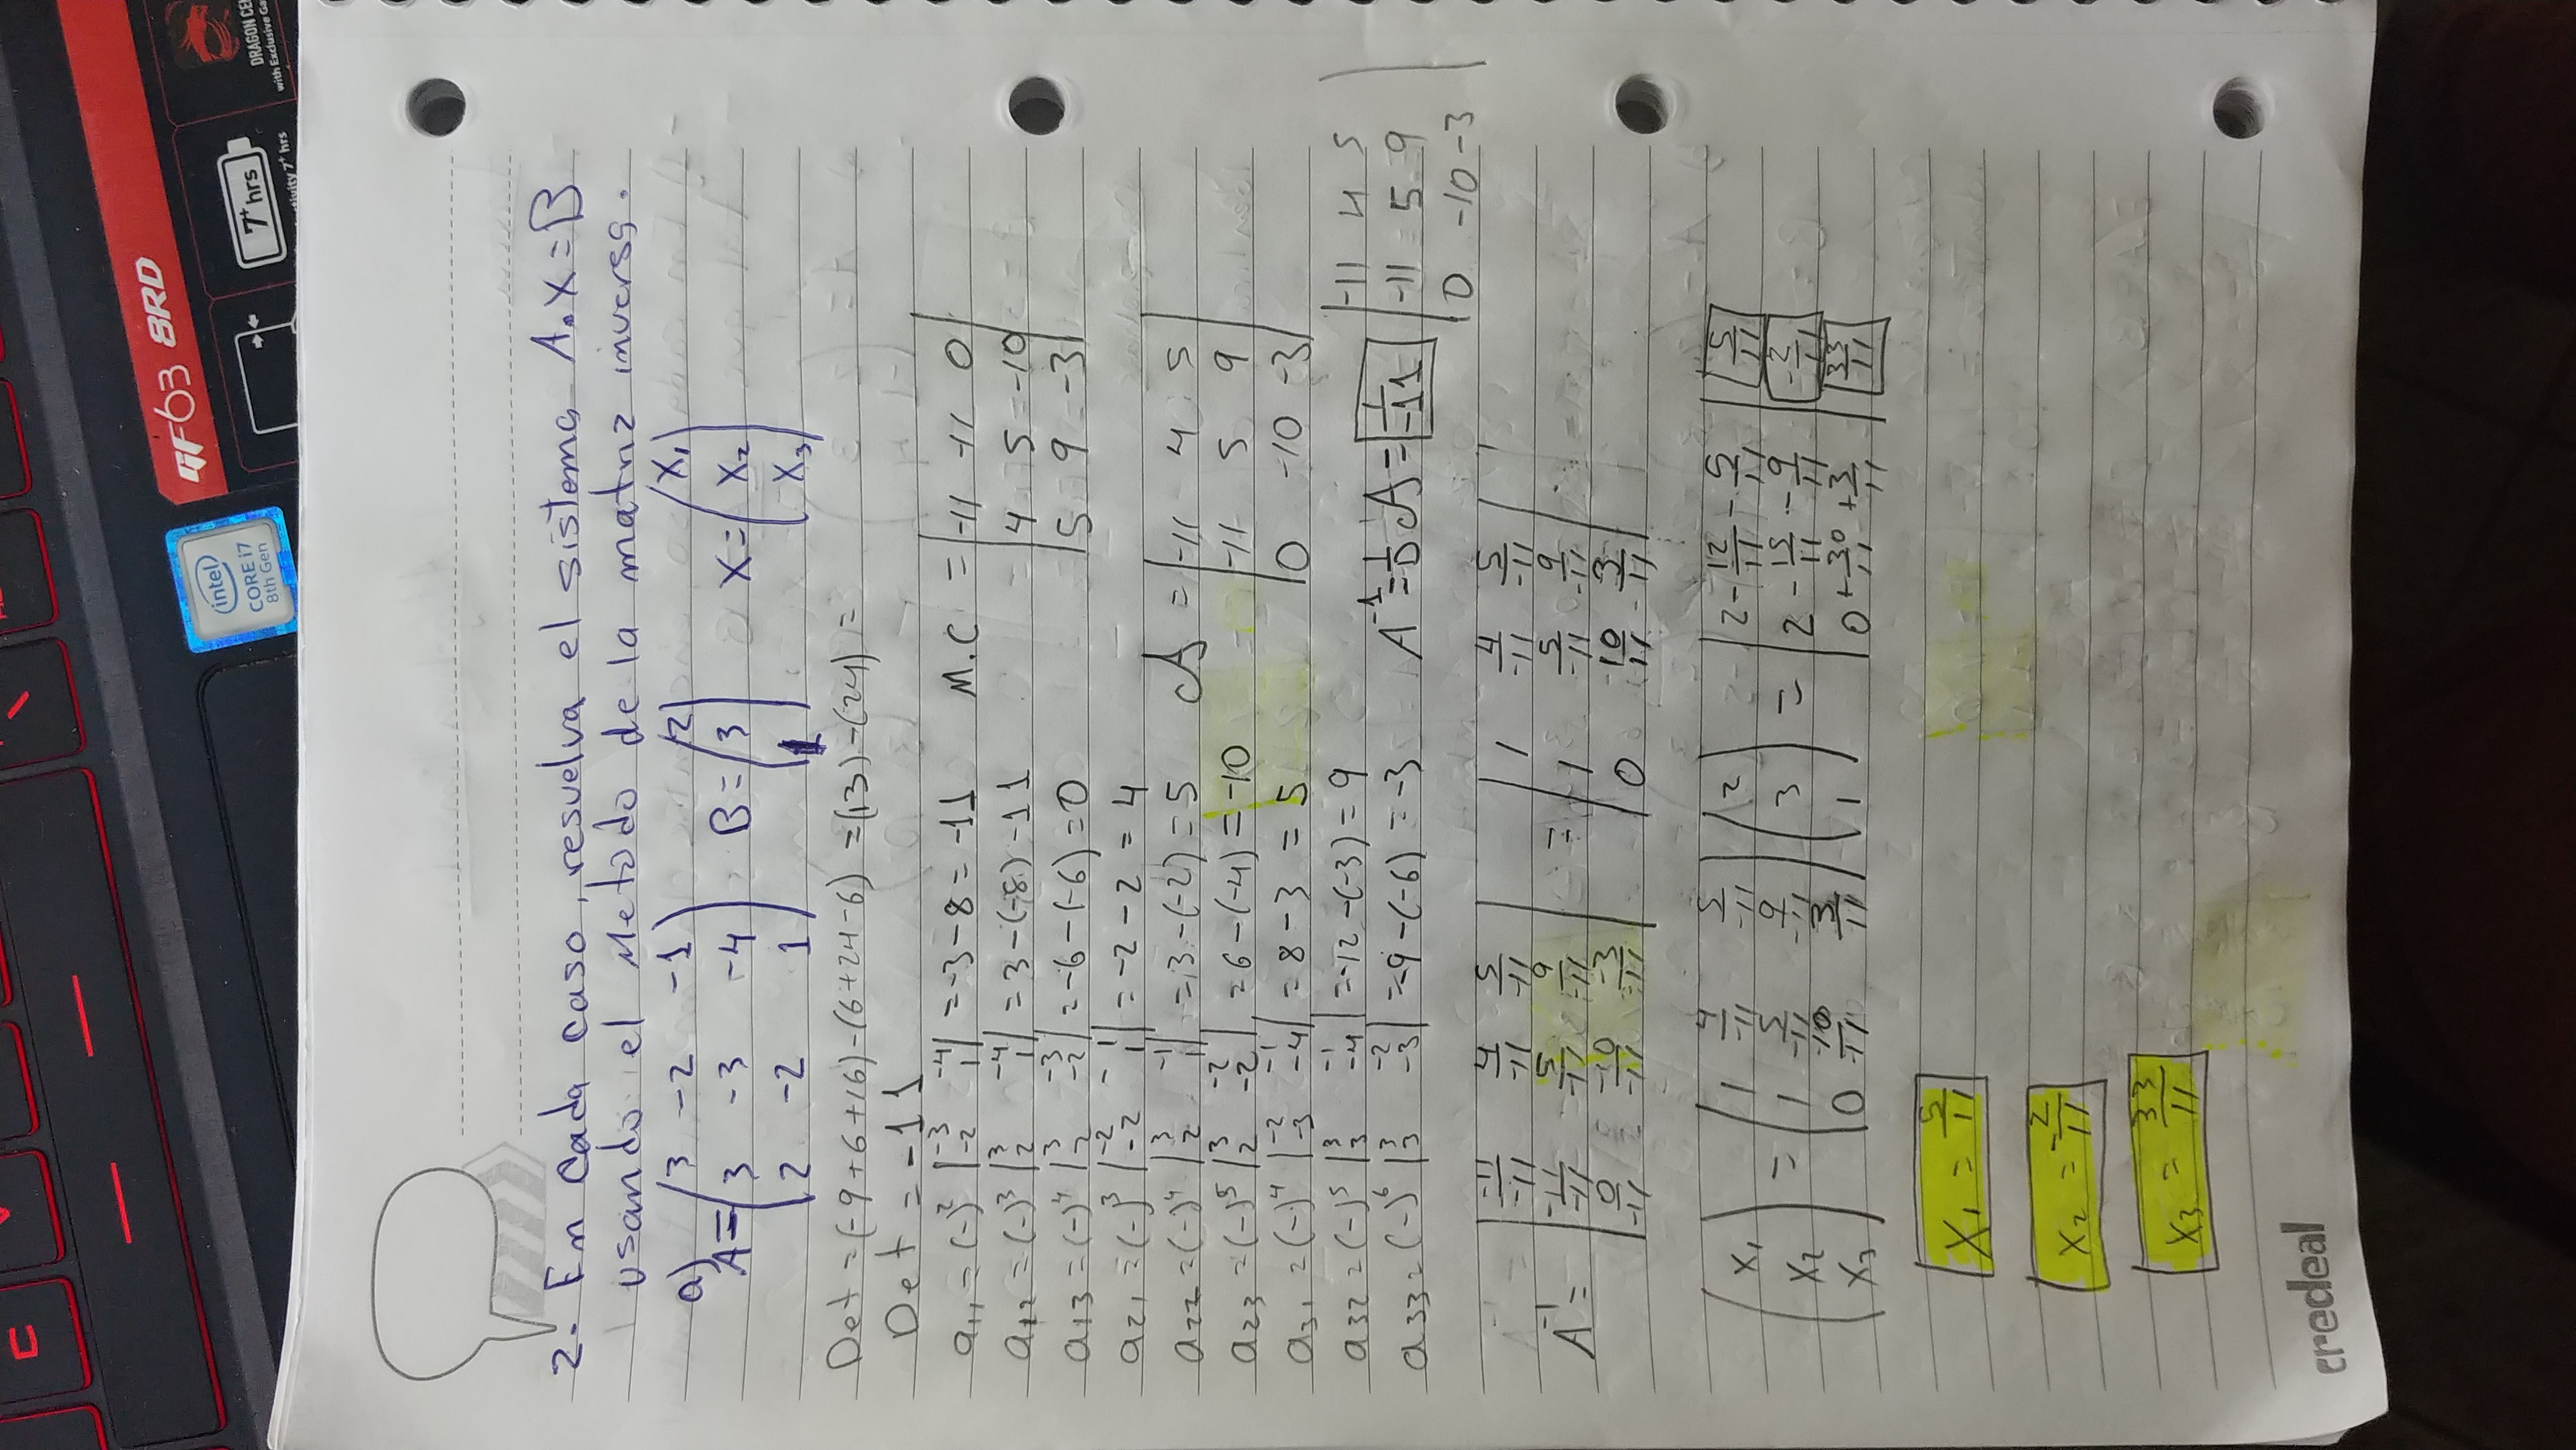 C
intel
CORE i7
8th Gen
GF63 8RD
7+ hrs
7+ hrs
DRAGON CE
with Exclusive Ga
2. En cada caso, resuelva el sistema A.X=B
usando el Metodo de la matriz inversa.
a) A= (3 -2 -1
3 -3 -4
2 -2 1)
B= (2
3
1)
X= (X1
X2
X3)
Det =(-9+6+16)-(6+24-6) =(13)-(24)=
Det =-11
a11 = (-)² |-3 -4
-2 1| =-3-8= -11
a12 = (-)³ |3 -4
2 1| = 3-(-8) -11
a13 = (-)⁴ |3 -3
2 -2| =-6-(-6)=0
a21 = (-)³ |-2 -1
-2 1| =-2-2 = 4
a22 =(-)⁴ |3 -1
2 1| =3-(-2)=5
a23 =(-)⁵ |3 -2
2 -2| =6-(-4)=-10
a31 =(-)⁴ |-2 -1
-3 -4| = 8-3 = 5
a32 =(-)⁵ |3 -1
3 -4| =-12-(-3)=9
a33=(-)⁶ |3 -2
3 -3| =-9-(-6)=-3
M.C = |-11 -11 0
4 5 -10
5 9 -3|
A = |-11 4 5
-11 5 9
0 -10 -3|
A⁻¹=1/D A= 1/-11 |-11 4 5
-11 5 9
0 -10 -3|
A⁻¹= |-11/-11 4/-11 5/-11
-11/-11 5/-11 9/-11
0/-11 -10/-11 -3/-11|
= |1 4/-11 5/-11
1 5/-11 9/-11
0 10/11 3/11|
(X1
X2
X3) = |1 4/-11 5/-11
1 5/-11 9/-11
0 10/11 3/11| (2
3
1) = |2-12/11-5/11
2-15/11-9/11
0+30/11+3/11| 5/11
-2/11
33/11
X1 = 5/11
X2 = -2/11
X3 = 33/11
credeal